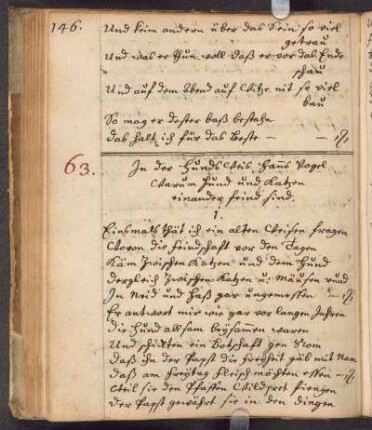 146.
Und keim andern über das Sein so viel
getrau
Und was er thun will daß er vor das Ende
schau
Und auf dem Abend auf Witz nit so viel
bau
So mag er dester baß bestehn
das halt ich für das Beste
63.
In der Hunds Weis Hanß Vogel
Warum Hund und Katzen
einander feind sind.
1.
Einsmals thät ich ein alten Weisen fragen
Wovon die feindschaft vor den Tagen
Käm zwischen Katzen und dem Hund
dergleich zwischen Katzen u. Mäusen
In Neid und Haß gar ungemessen
Er antwort mir wie gar vor langen Jahren
die Hund allsam beysammen waren
Und schickten ein Botschaft gen Rom
daß ihn der Papst die Freyheit gäb mit Nam
daß am Freytag Fleisch möchten essen
Weil sie den Pfaffen Wildpret fiengen
der Papst gewährt sie in den dingen